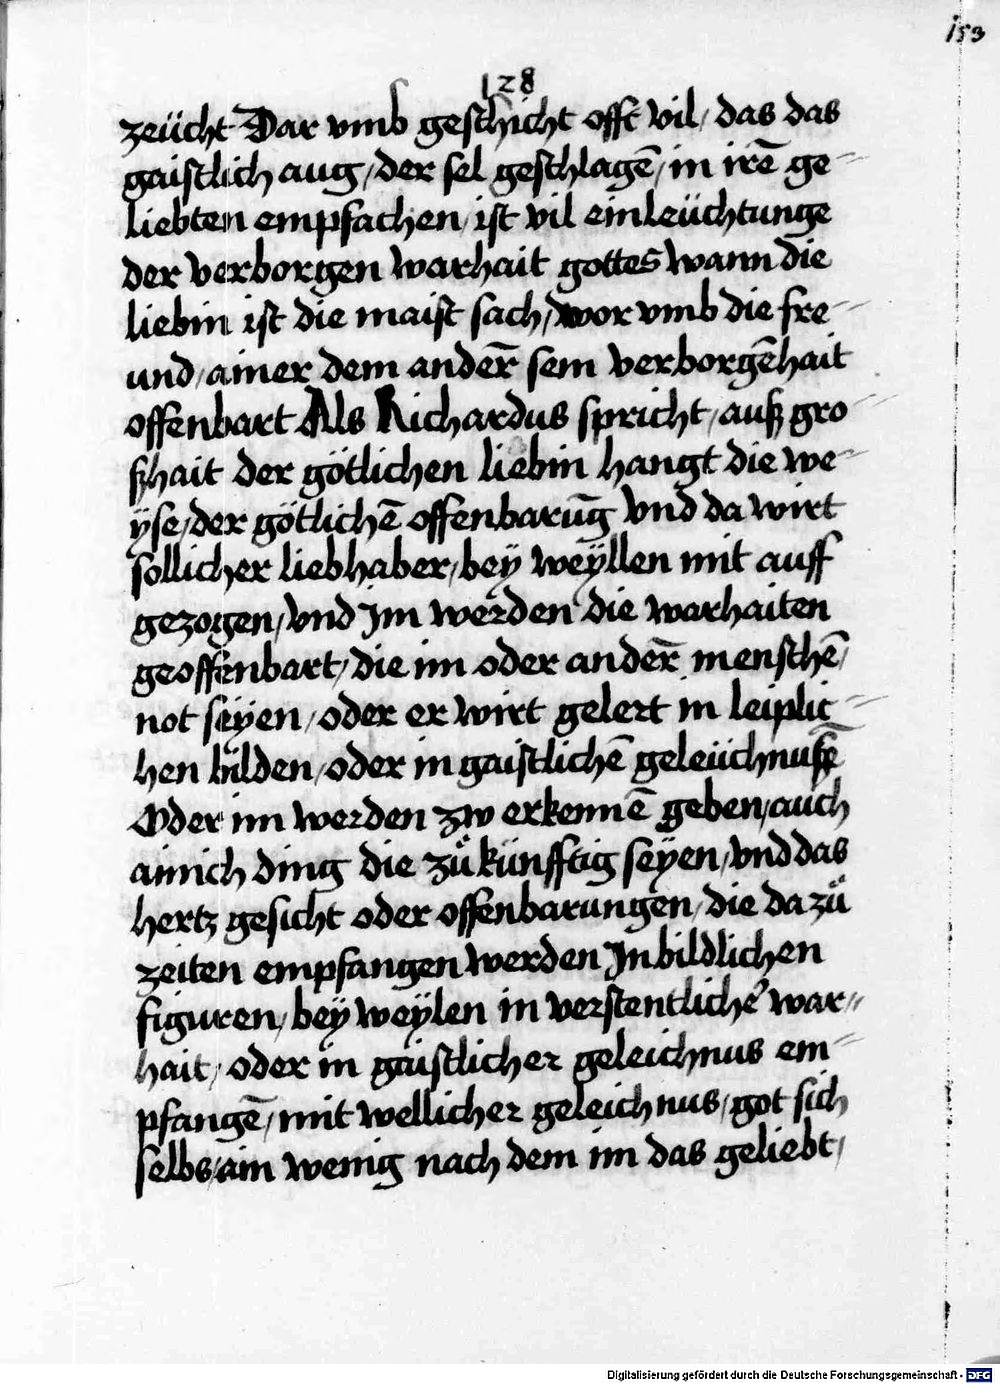 153
128
zeücht Dar vmb geschicht offt vil / das das
gaistlich aug / der sel geschlagē / in irē ge=
liebten empfachen / ist vil einleüchtunge
der verborgen warhait gottes wann die
liebin ist die maist sach / wor vmb die fre=
und / ainer dem ander̄ sein verborgēhait
offenbart Als Richardus spricht / auß gro=
ßhait der götlichen liebin hangt die we=
ÿse / der götlichē offenbarūg vnd da wirt
sollicher liebhaber / beÿ weÿllen mit auff
gezogen / vnd Im werden die warhaiten
geoffenbart / die im oder ander̄ menschē /
not seÿen / oder er wirt gelert in leiplic=
hen bilden / oder in gaistlichē geleüchnußē
Oder im werden zw erkennē geben / auch
ainich ding die zů künfftig seÿen / vnd das
hertz gesicht oder offenbarungen / die da zů
zeiten empfangen werden In bildlichen
figuren / beÿ weÿlen in verstentlichē war=
hait / oder in gaistlicher geleichnus em=
pfangē / mit wellicher geleichnus / got sich
selbs / ain wenig nach dem im das geliebt /
Digitalisierung gefördert durch die Deutsche Forschungsgemeinschaft - DFG